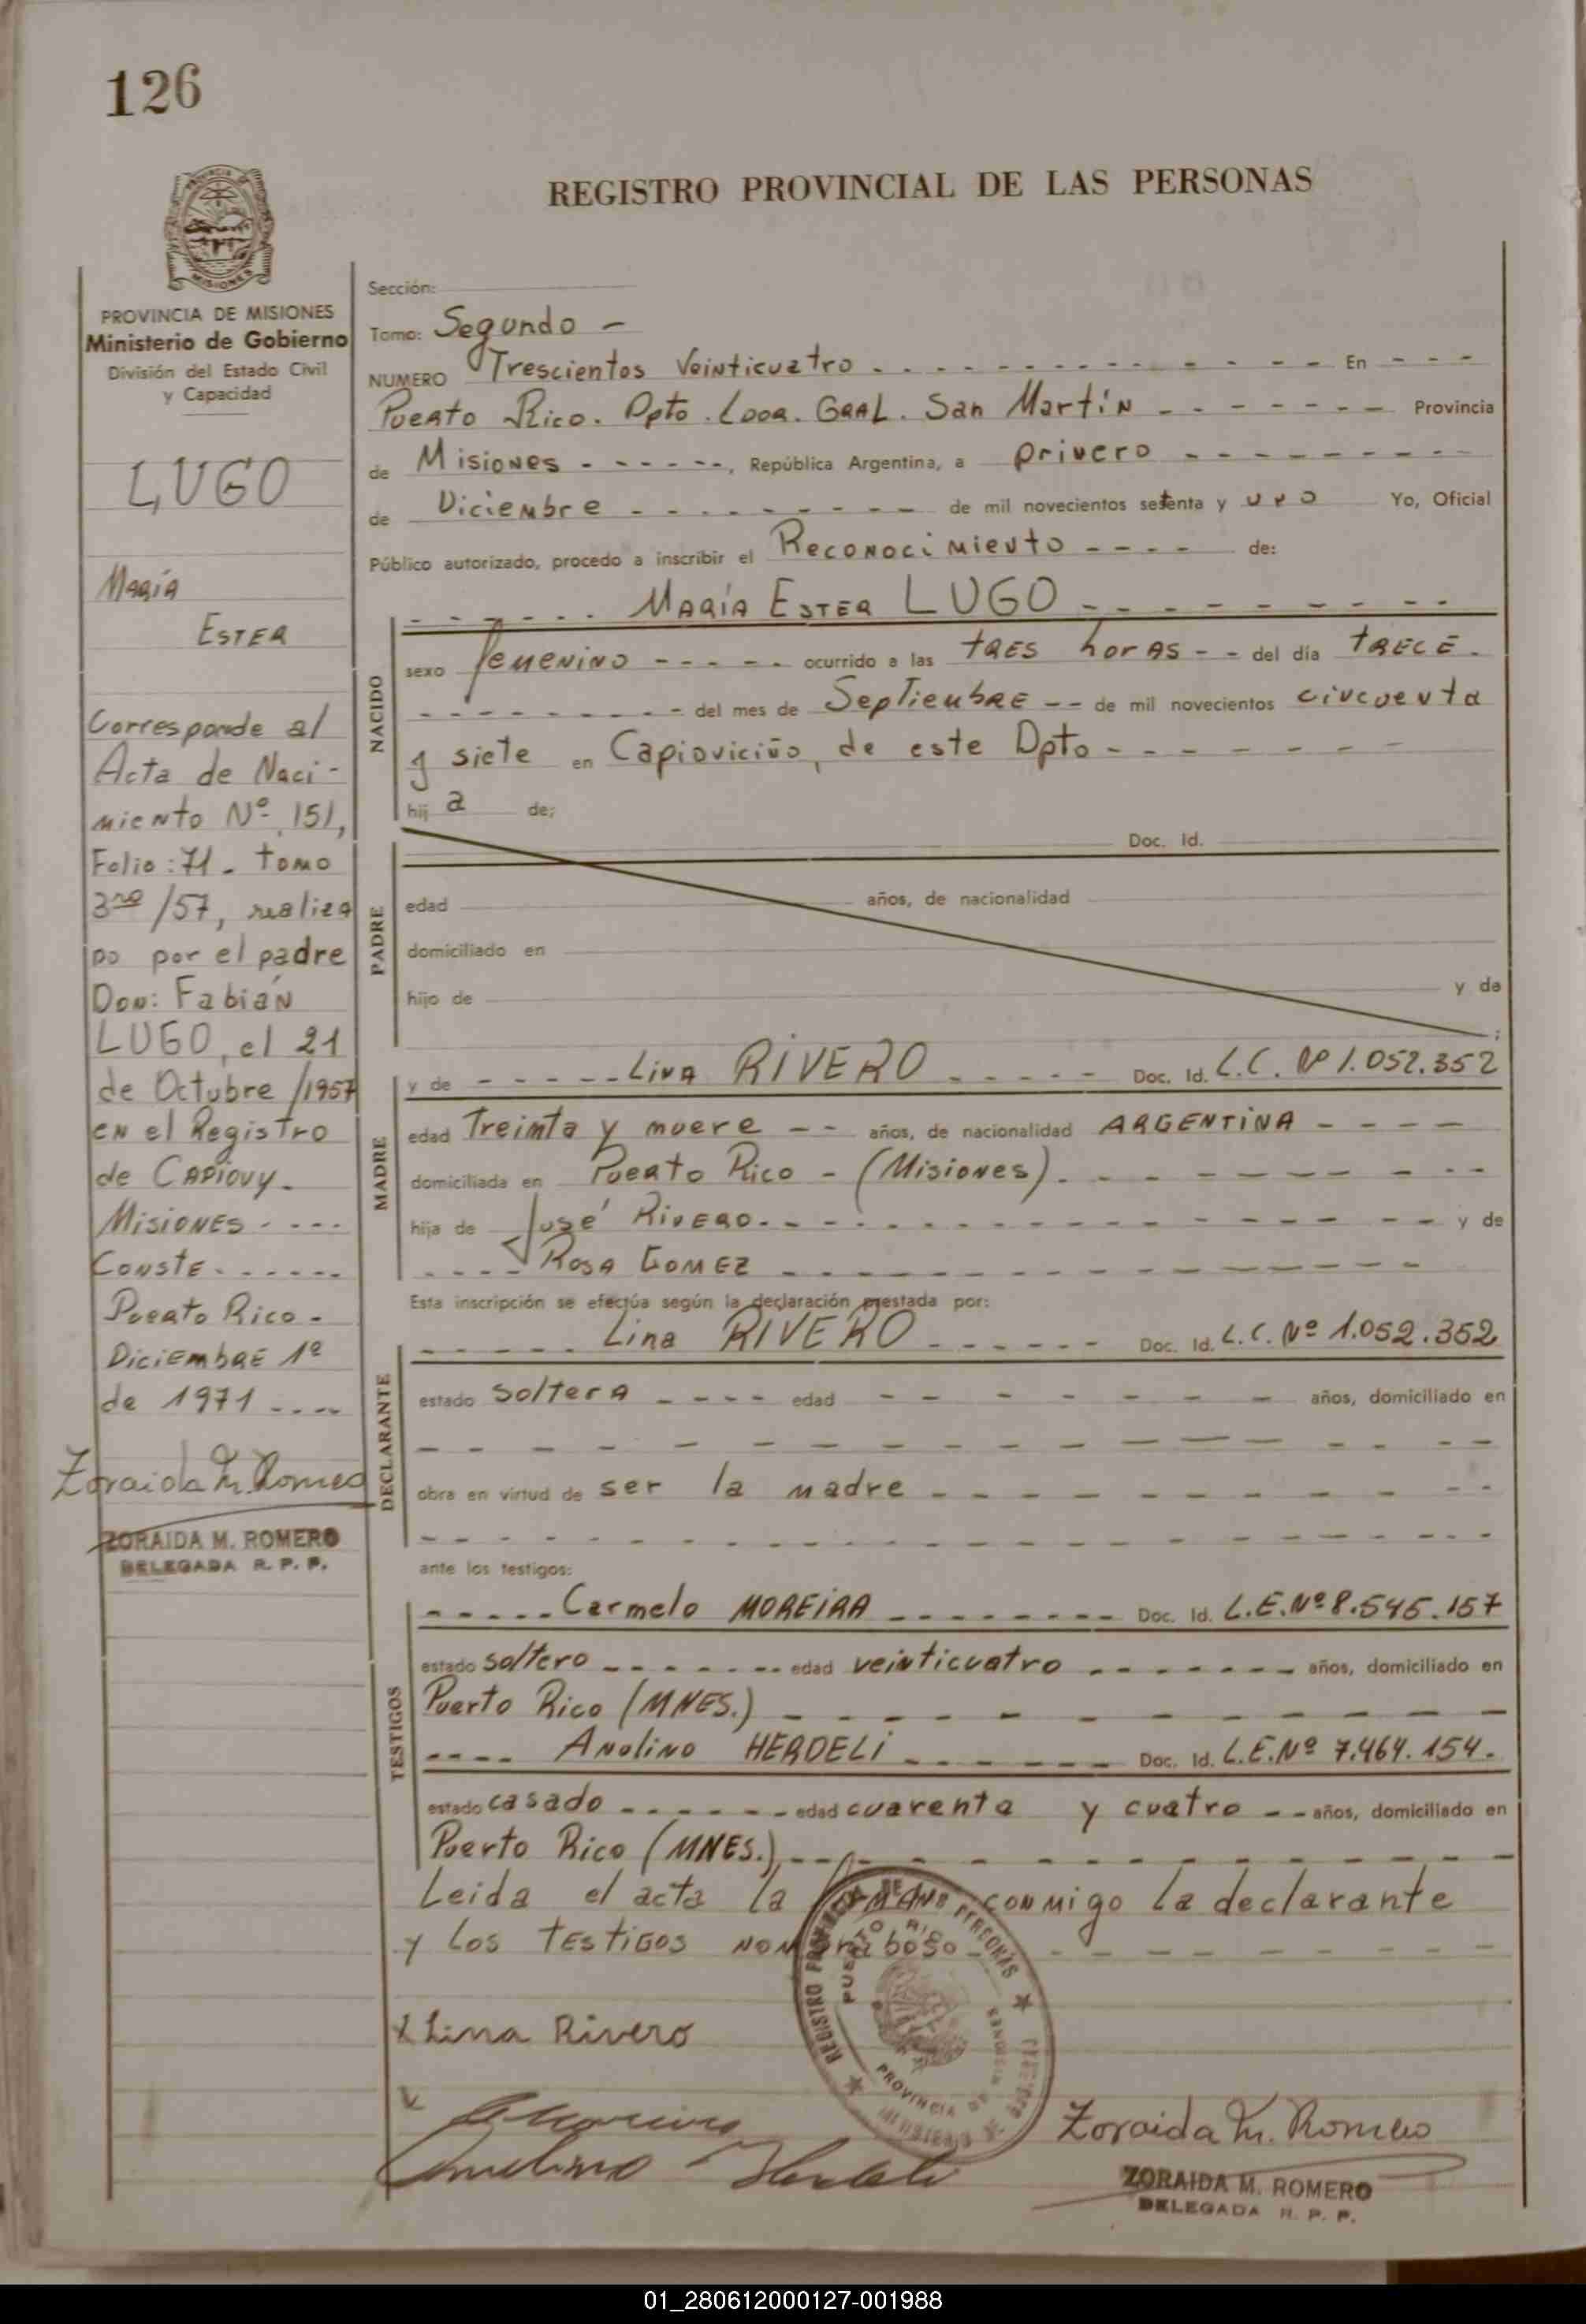 126
REGISTRO PROVINCIAL DE LAS PERSONAS
PROVINCIA DE MISIONES
Ministerio de Gobierno
División del Estado Civil
y Capacidad
LUGO
María
Ester
Corresponde al
Acta de Naci-
miento Nº 151,
Folio: 71 - tomo
3ro /57, realiza
do por el padre
Don: Fabián
LUGO, el 21
de Octubre /1957
en el Registro
de Capiovy -
Misiones - - - -
Conste - - - - - -
Puerto Rico -
Diciembre 1º
de 1971 - - - -
Zoraida M. Romero
ZORAIDA M. ROMERO
DELEGADA R. P. P.
Sección:
Tomo: Segundo -
NUMERO Trescientos Veinticuatro - - - En - - -
Puerto Rico. Dpto. Ldor. Gral. San Martín - - - Provincia
de Misiones - - - , República Argentina, a primero - - -
de Diciembre - - - de mil novecientos setenta y uno Yo, Oficial
Público autorizado, procedo a inscribir el Reconocimiento - - - - de:
- - - María Ester LUGO - - -
NACIDO
sexo femenino - - - ocurrido a las tres horas - - del día trece -
- - - del mes de Septiembre - - de mil novecientos cincuenta
y siete en Capioviciño, de este Dpto - - -
hij a de;
PADRE
Doc. Id.
edad años, de nacionalidad
domiciliado en
hijo de y de
;
MADRE
y de - - - Lina RIVERO - - - Doc. Id. L.C. Nº 1.052.352
edad Treinta y nueve - - años, de nacionalidad ARGENTINA - - - -
domiciliada en Puerto Rico - (Misiones) - - -
hija de José Rivero - - - y de
- - - - Rosa Gomez - - -
Esta inscripción se efectúa según la declaración prestada por:
DECLARANTE
- - - Lina RIVERO - - - Doc. Id. L.C. Nº 1.052.352
estado soltera - - - - edad - - - años, domiciliado en
- - -
obra en virtud de ser la madre - - -
- - -
ante los testigos:
TESTIGOS
- - - Carmelo MOREIRA - - - Doc. Id. L.E. Nº 8.545.157
estado soltero - - - edad veinticuatro - - - años, domiciliado en
Puerto Rico (MNES.) - - -
- - - - Anolino HERDELI - - - Doc. Id. L.E. Nº 7.464.154.
estado casado - - - edad cuarenta y cuatro - - años, domiciliado en
Puerto Rico (MNES.), - - -
Leida el acta la conmigo la declarante
y los testigos - - -
REGISTRO PROVINCIAL DE LAS PERSONAS
PUERTO RICO
PROVINCIA DE MISIONES
x Lina Rivero
Zoraida M. Romero
ZORAIDA M. ROMERO
DELEGADA R. P. P.
01_280612000127-001988